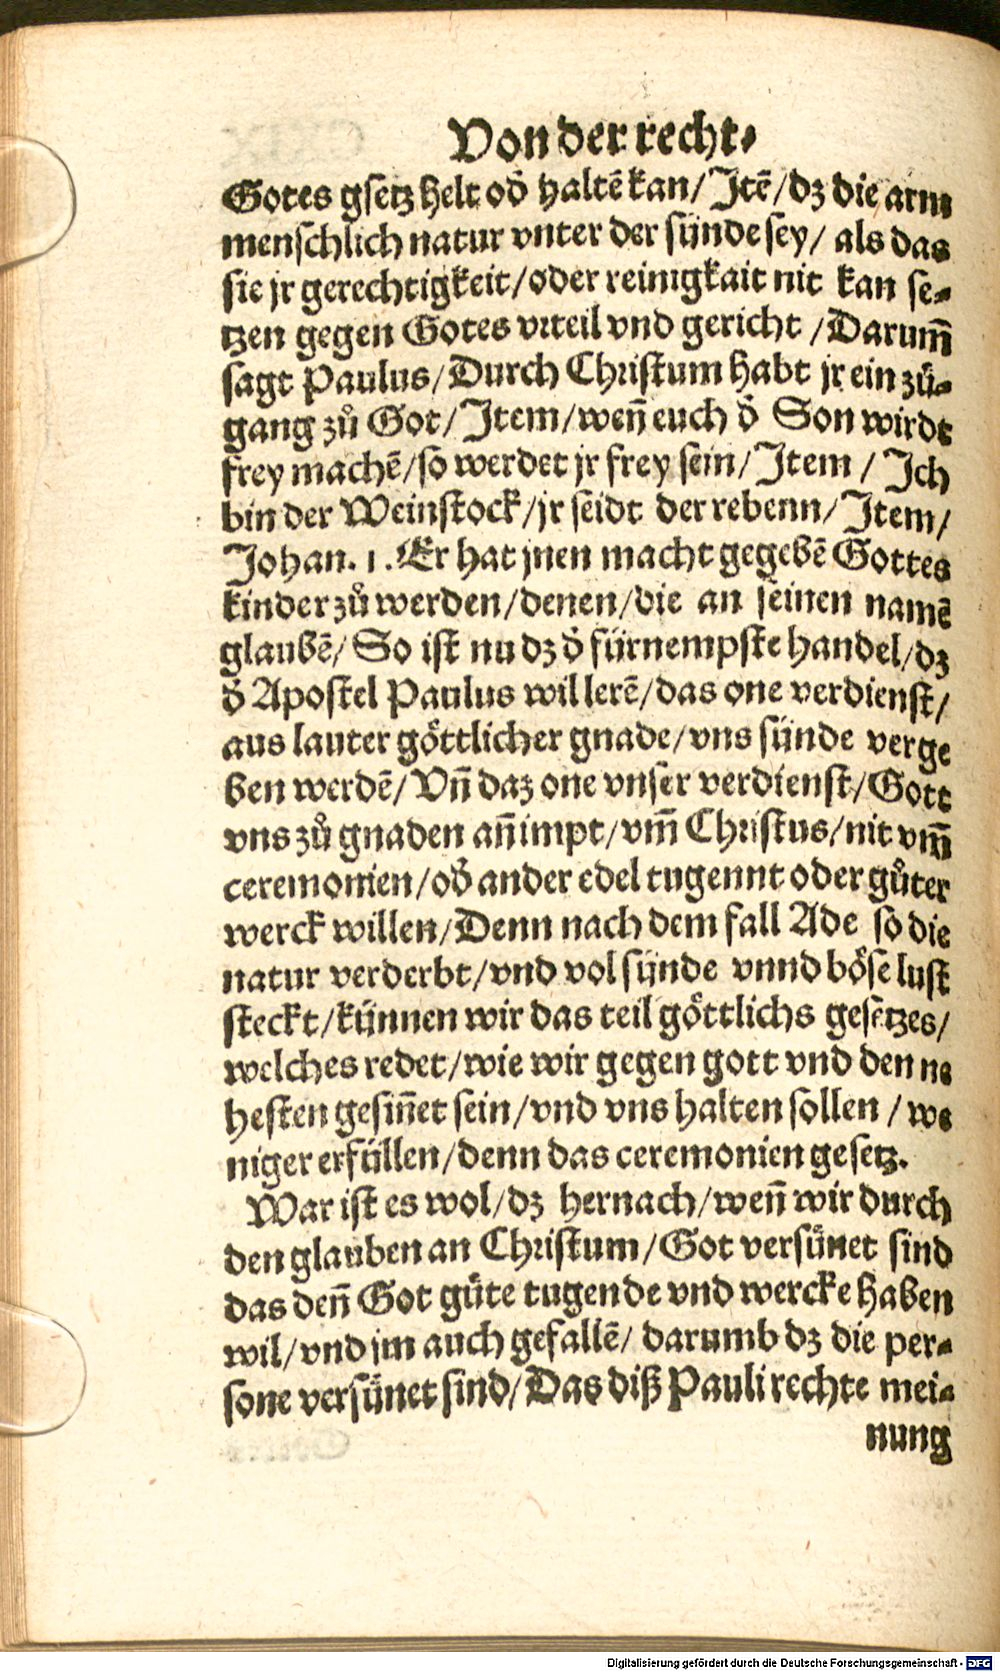 Von der recht⸗
Gotes gsetz helt od̕ haltē kan/ Jtē/ dz die arm
menschlich natur vnter der sünde sey/ als das
sie jr gerechtigkeit/ oder reinigkait nit kan se⸗
tzen gegen Gotes vrteil vnd gericht / Darum̄
sagt Paulus/ Durch Christum habt jr ein zů⸗
gang zů Got/ Jtem/ wen̄ euch d̕ Son wirdt
frey machē/ so werdet jr frey sein/ Jtem / Jch
bin der Weinstock/ jr seidt der rebenn/ Jtem/
Johan. 1. Er hat jnen macht gegebē Gottes
kinder zů werden/ denen/ die an seinen namē
glaubē/ So ist nu dz d̕ fürnempste handel/ dz
d̕ Apostel Paulus wil lerē/ das one verdienst/
aus lauter göttlicher gnade/ vns sünde verge
ben werdē/ Vn̄ daz one vnser verdienst/ Gott
vns zů gnaden an̄impt/ vm̄ Christus/ nit vm̄
ceremonien/ od̕ ander edel tugennt oder gůter
werck willen/ Denn nach dem fall Ade so die
natur verderbt/ vnd vol sünde vnnd böse lust
steckt/ künnen wir das teil göttlichs gesetzes/
welches redet/ wie wir gegen gott vnd den ne
hesten gesin̄et sein/ vnd vns halten sollen / we
niger erfüllen/ denn das ceremonien gesetz.
War ist es wol/ dz hernach/ wen̄ wir durch
den glauben an Christum/ Got versünet sind
das den̄ Got güte tugende vnd wercke haben
wil/ vnd jm auch gefallē/ darumb dz die per⸗
sone versünet sind/ Das diß Pauli rechte mei⸗
nung
Digitalisierung gefördert durch die Deutsche Forschungsgemeinschaft - DFG